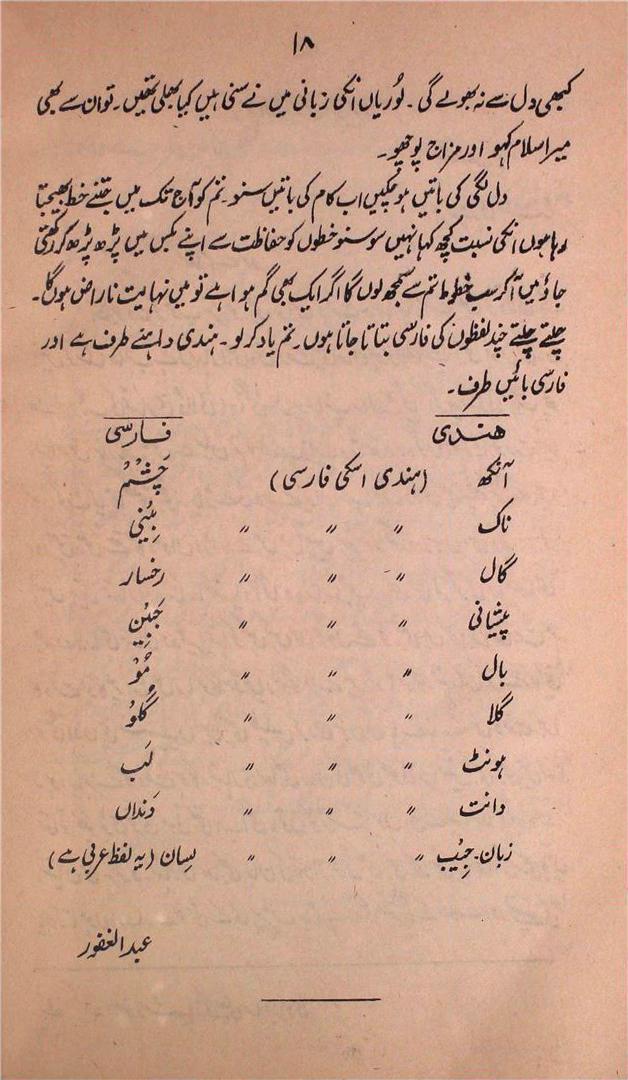 ۱۸
کبھی دل سے نہ بھولے گی۔ لُوریاں انکی زبانی میں نے سنی ہیں کیا بھلی تھیں۔ تو ان سے بھی
میرا سلام کہو اور مزاج پوچھو۔
دل لگی کی باتیں ہو چکیں اب کام کی باتیں سنو۔ تم کو آج تک میں جتنے خط بھیجتا
رہا ہوں انکی نسبت کچھ کہا نہیں سو سنو خطوں کو حفاظت سے اپنے بکس میں پڑھ پڑھ کر رکھتی
جاؤ میں آکر سب خطوط تم سے سمجھ لوں گا اگر ایک بھی گم ہوا ہے تو میں نہایت ناراض ہوں گا۔
چلتے چلتے چند لفظوں کی فارسی بتاتا جاتا ہوں۔ تم یاد کر لو۔ ہندی داہنے طرف ہے اور
فارسی بائیں طرف۔
ہندی فارسی
آنکھ (ہندی اسکی فارسی) چَشْمْ
ناک " " " بِیْنی
گال " " " رخسار
پیشانی " " " جَبِیْن
بال " " " مُوْ
گلا " " " گُلُوْ
ہونٹ " " " لَب
دانت " " " دَنداں
زبان۔ جِیْب " " " لِسان (یہ لفظ عربی ہے)
عبدالغفور